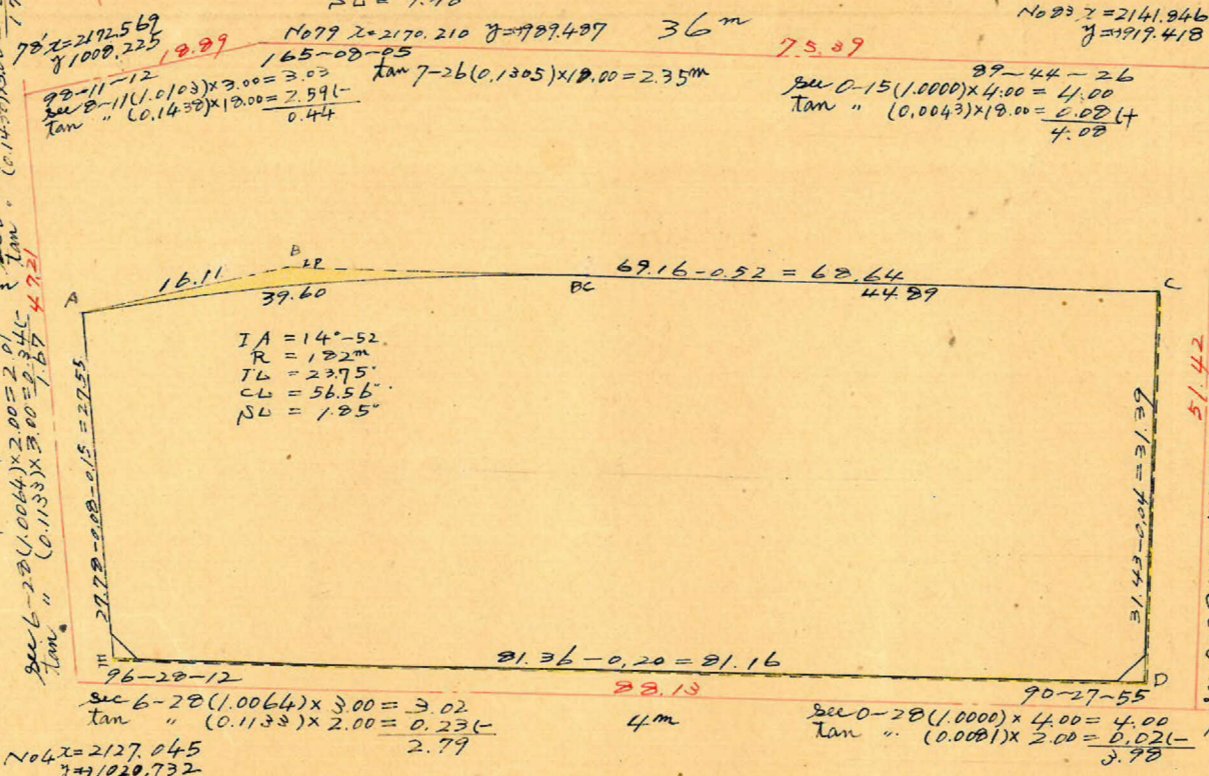 78' x=2172.569
y 1008.225
18.89
No79 x=2170.210 y=+989.487
36 m
No83 x=2141.846
y=+919.418
75.39
98-11-12
sec 8-11(1.0103)×3.00=3.03
tan " (0.1438)×18.00=2.59(-
0.44
165-08-05
tan 7-26(0.1305)×18.00=2.35m
89-44-26
sec 0-15(1.0000)×4.00=4.00
tan " (0.0043)×18.00=0.08(+
4.08
47.21
A
16.11
B
I.P
39.60
BC
69.16-0.52=68.64
44.89
C
IA=14°-52
R=182m
TL=23.75"
CL=56.56"
SL=1.85"
27.78-0.08-0.15=27.55
sec 6-28(1.0064)×2.00=2.01
tan " (0.1133)×3.00=0.34(-
1.67
31.43-0.04=31.39
51.42
E
81.36-0.20=81.16
D
96-28-12
88.13
90-27-55
sec 6-28(1.0064)×3.00=3.02
tan " (0.1133)×2.00=0.23(-
2.79
4m
sec 0-28(1.0000)×4.00=4.00
tan " (0.0081)×2.00=0.02(-
3.98
No4 x=2127.045
y=+1020.732